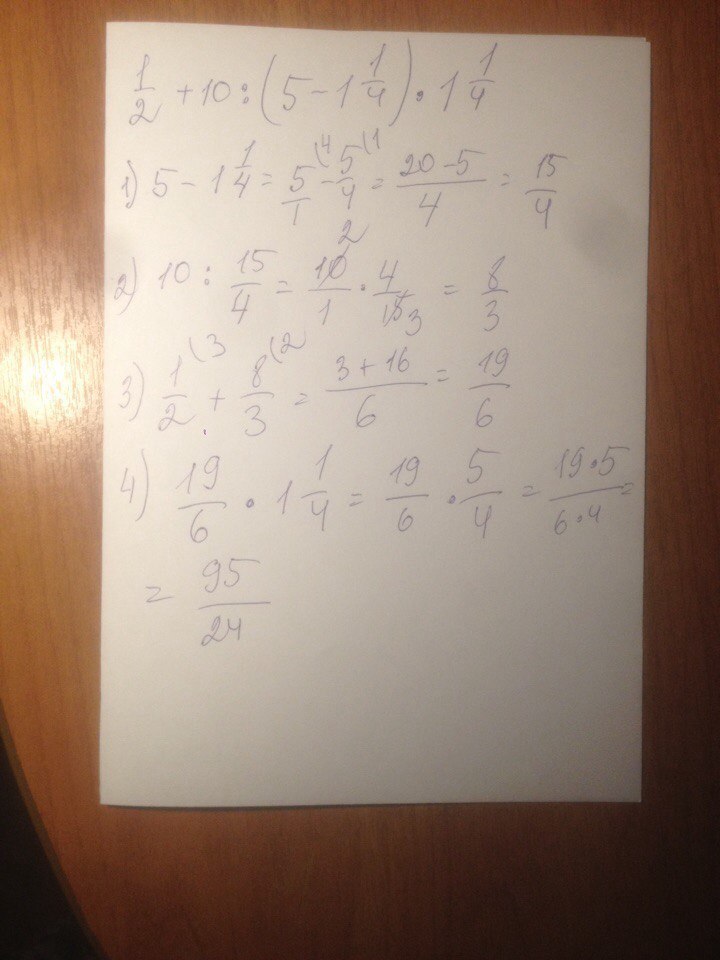 1/2 + 10 : (5 - 1 1/4) · 1 1/4
1) 5 - 1 1/4 = 5/1 (4 - 5/4 (1 = 20-5/4 = 15/4
2) 10 : 15/4 = 10/1 2 · 4/15 3 = 8/3
3) 1/2 (3 + 8/3 (2 = 3+16/6 = 19/6
4) 19/6 · 1 1/4 = 19/6 · 5/4 = 19·5/6·4 =
= 95/24